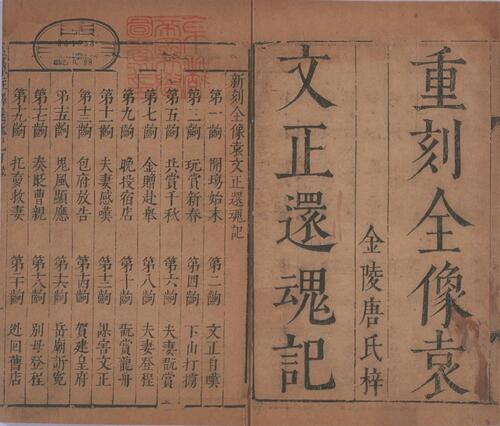 重刻全像袁
文正還魂記
金陵唐氏梓
新刻全像袁文正還魂記
第一齣 開場始末 第二齣 文正自嘆
第三齣 玩賞新春 第四齣 下山打擄
第五齣 賞千秋 第六齣 夫妻翫賞
第七齣 金贈赴舉 第八齣 夫妻登程
第九齣 晚投宿店 第十齣 翫賞龍舟
第十一齣 夫妻感嘆 第十二齣 謀害文正
第十三齣 包府放告 第十四齣 賀建皇府
第十五齣 鬼風顯應 第十六齣 岳廟訴冤
第十七齣 奏貶曹親 第十八齣 別母登程
第十九齣 救妻 第二十齣 迯回舊店